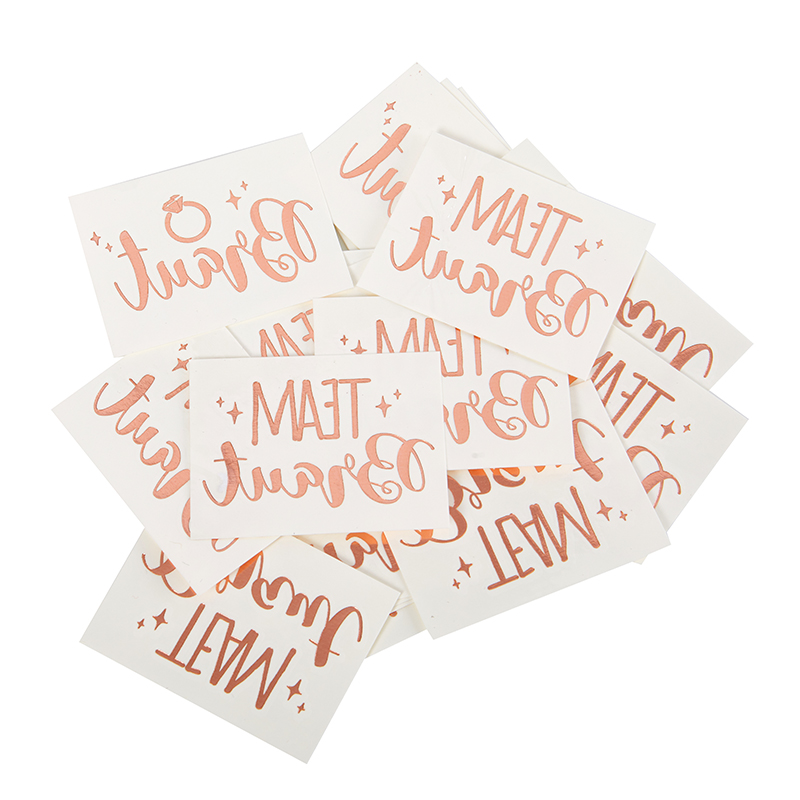 Braut
TEAM
Braut
TEAM
Braut
TEAM
Braut
Braut
TEAM
TEAM
TEAM